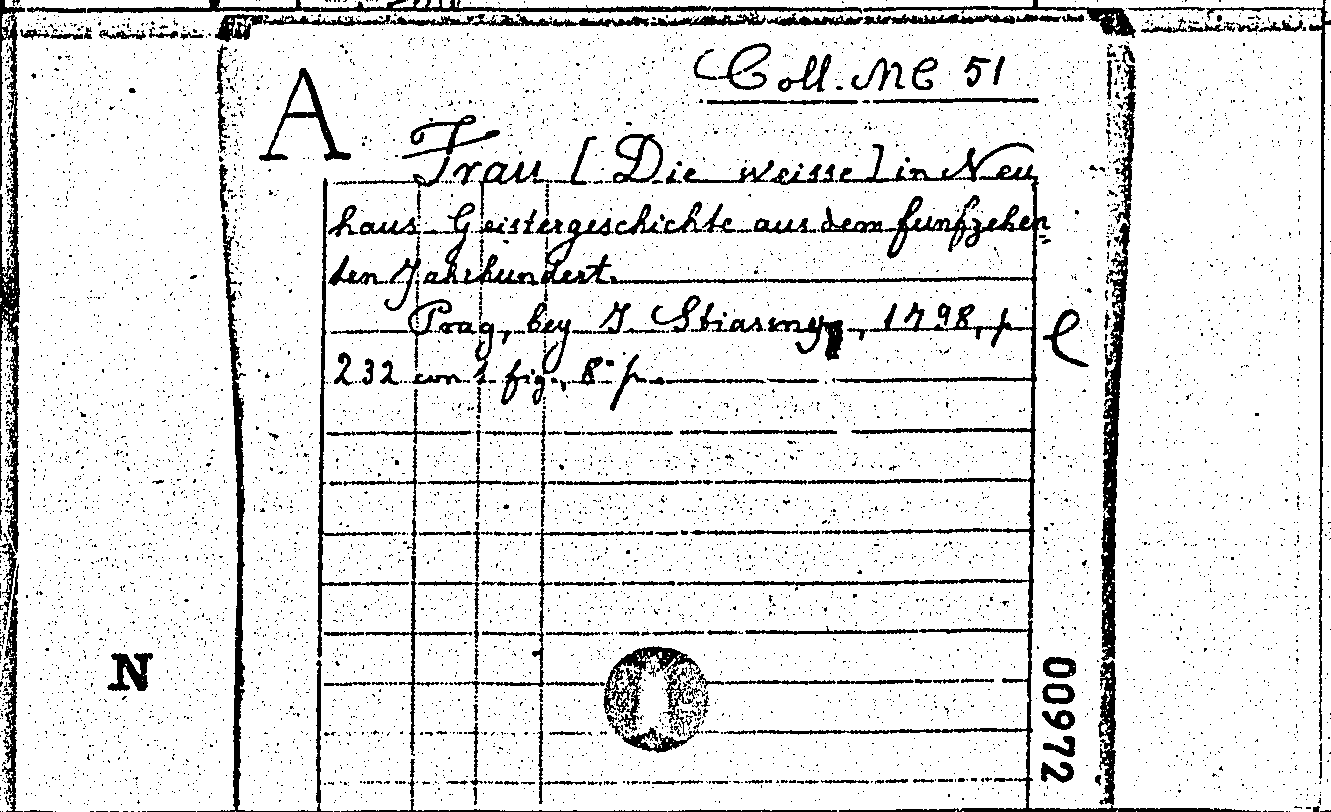 Coll. MC 51
A
Frau [Die weisse] in Neu
haus Geistergeschichte aus dem funfzehen=
ten Jahrhundert.
Prag, bey J. Stiasny, 1798, p
232 con 1 fig., 8° p.
N
00972